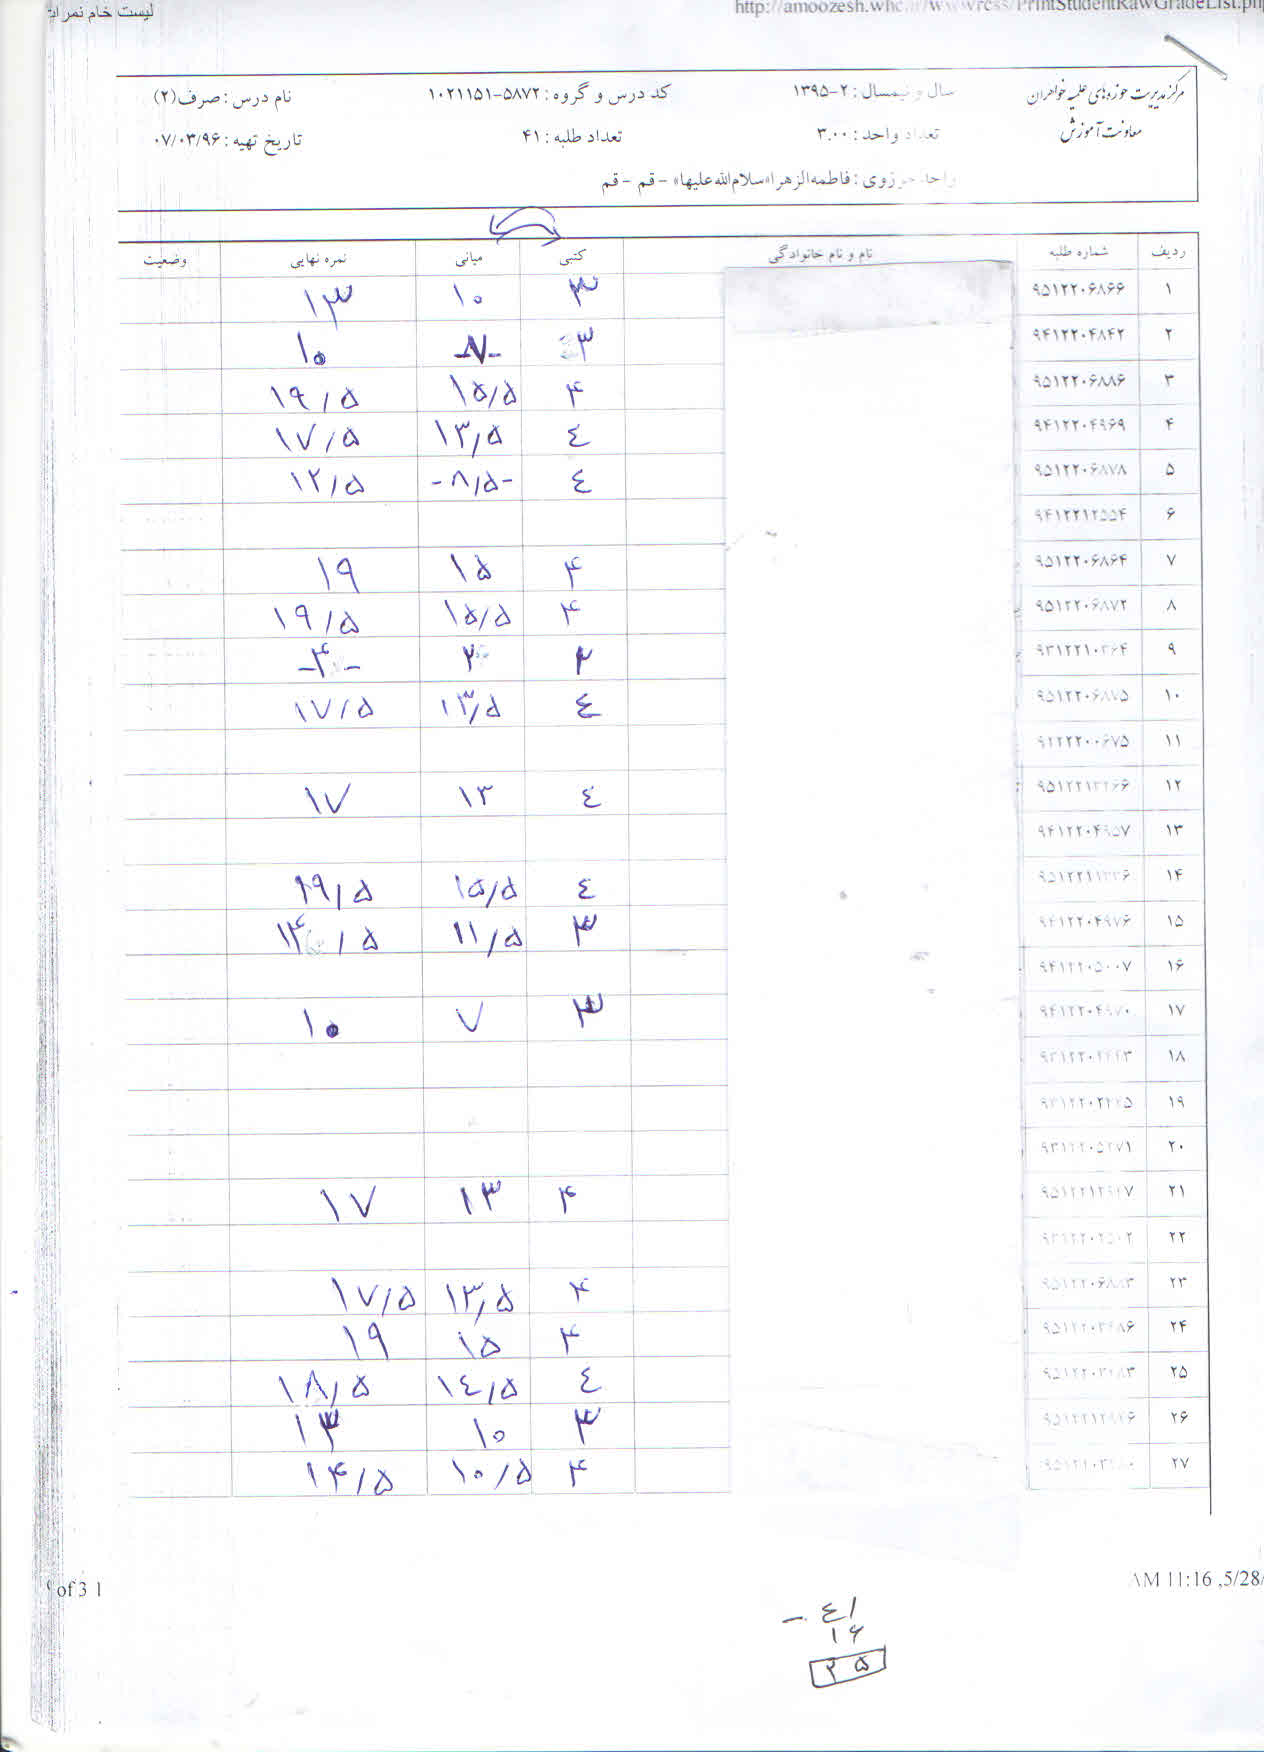 لیست خام نمرات
http://amoozesh.whc.ir/
مرکز مدیریت حوزه‌های علمیه خواهران
سال و نیمسال : ۲-۱۳۹۵
کد درس و گروه : ۵۸۷۲-۱۰۲۱۱۵۱
نام درس : صرف(۲)
معاونت آموزش
تعداد واحد : ۳.۰۰
تعداد طلبه : ۴۱
تاریخ تهیه : ۰۷/۰۳/۹۶
فاطمه‌الزهرا«سلام‌الله‌علیها» - قم - قم
ردیف شماره طلبه نام و نام خانوادگی کتبی میانی نمره نهایی وضعیت
۱ ۹۵۱۲۲۰۶۸۶۶ ۳ ۱۰ ۱۳
۲ ۹۴۱۲۲۰۴۸۴۲ ۳ -۷- ۱۰
۳ ۹۵۱۲۲۰۶۸۸۶ ۴ ۱۵/۵ ۱۹/۵
۴ ۹۴۱۲۲۰۴۹۶۹ ٤ ۱۳/۵ ۱۷/۵
۵ ۹۵۱۲۲۰۶۸۷۸ ٤ -۸/۵- ۱۲/۵
۶ ۹۴۱۲۲۱۲۵۵۴
۷ ۹۵۱۲۲۰۶۸۶۴ ۴ ۱۵ ۱۹
۸ ۹۵۱۲۲۰۶۸۷۲ ۴ ۱۵/۵ ۱۹/۵
۹ ۹۳۱۲۲۱۰۳۶۴ ۲ ۲ -۴-
۱۰ ۹۵۱۲۲۰۶۸۷۵ ٤ ۱۳/۵ ۱۷/۵
۱۱ ۹۲۲۲۲۰۰۶۷۵
۱۲ ٤ ۱۳ ۱۷
۱۳ ۹۴۱۲۲۰۴۹۵۷
۱۴ ٤ ۱۵/۵ ۱۹/۵
۱۵ ۹۴۱۲۲۰۴۹۷۶ ۳ ۱۱/۵ ۱۴/۵
۱۶ ۹۴۱۲۲۰۵۰۰۷
۱۷ ۹۴۱۲۲۰۴۹۷۰ ۳ ۷ ۱۰
۱۸
۱۹
۲۰
۲۱ ۴ ۱۳ ۱۷
۲۲
۲۳ ۹۵۱۲۲۰۶۸۸۳ ۴ ۱۳/۵ ۱۷/۵
۲۴ ۴ ۱۵ ۱۹
۲۵ ٤ ۱٤/۵ ۱۸/۵
۲۶ ۳ ۱۰ ۱۳
۲۷ ۴ ۱۰/۵ ۱۴/۵
of 3 1
AM 11:16 ,5/28/
- ٤۱
۱۶
۲۵